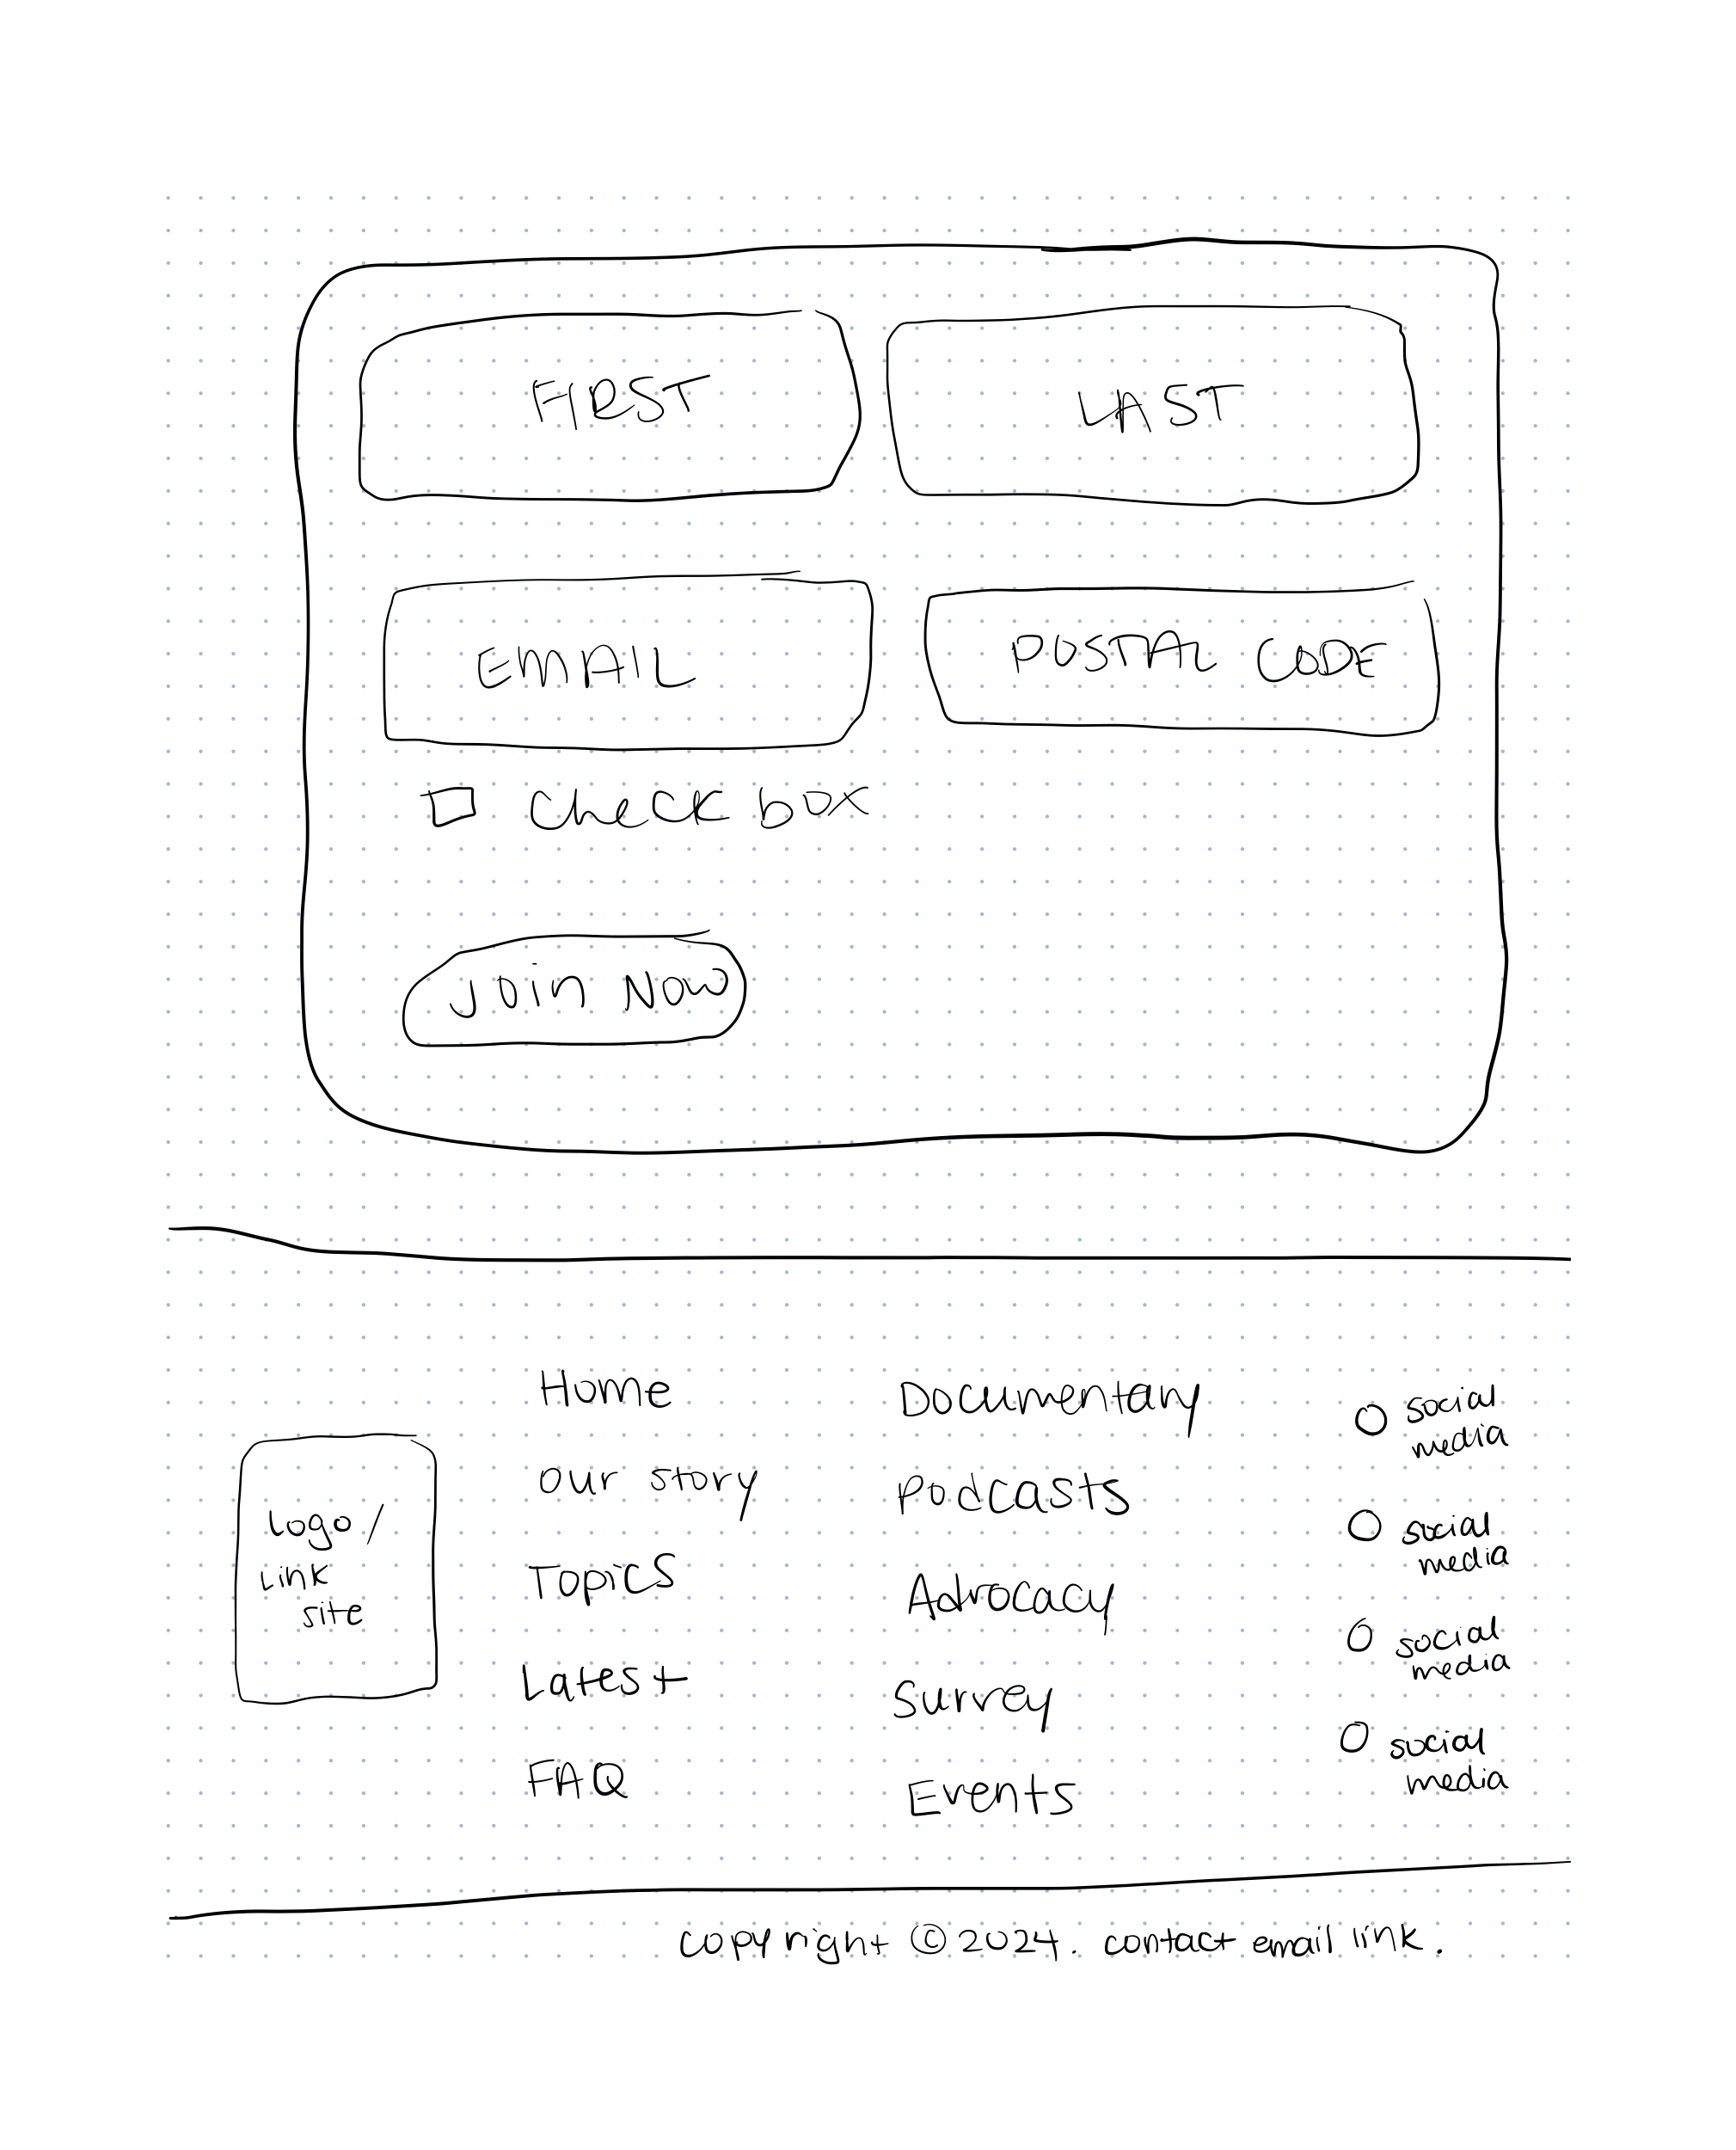 FIRST
LAST
EMAIL
POSTAL CODE
Check box
Join Now
Logo /
Link
site
Home
our story
Topics
Latest
FAQ
Documentary
Podcasts
Advocacy
Survey
Events
social
media
social
media
social
media
social
media
copyright © 2024. contact email link.